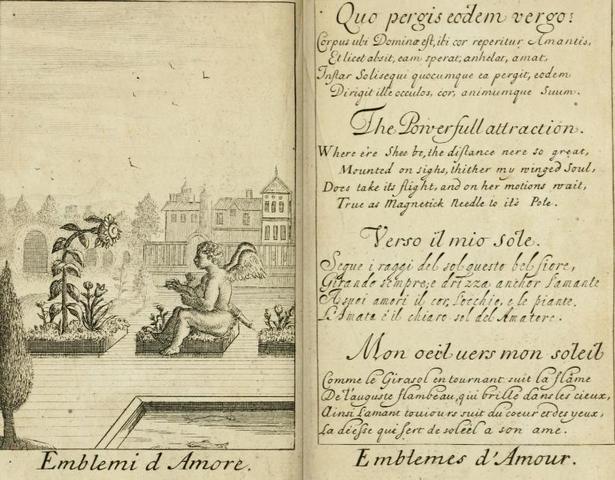 Emblemi d Amore.
Quo pergis eodem vergo:
Corpus ubi Dominæ est, ibi cor reperitur Amantis,
Et licet absit, eam sperat, anhelat, amat,
Instar Solisequi quocumque ea pergit, eodem
Dirigit ille occulos, cor, animumque Suum.
The Powerfull attraction.
Where e're Shee be, the distance nere so great,
Mounted on sighs, thither my winged Soul,
Does take its flight, and on her motions wait,
True as Magnetick Needle to it's Pole.
Verso il mio Sole.
Segue i raggi del sol questo bel fiore,
Girando sempre; e drizza anchor l'amante
A suoi amori il cor, l'occhie, e le piante.
L'Amata è il chiaro sol del Amatore.
Mon oeil vers mon soleil
Comme le Girasol en tournant suit la flame
De l'auguste flambeau, qui brille dans les cieux,
Ainsi l'amant toujours suit du coeur et des yeux,
La déesse qui sert de soleil a son ame.
Emblemes d'Amour.